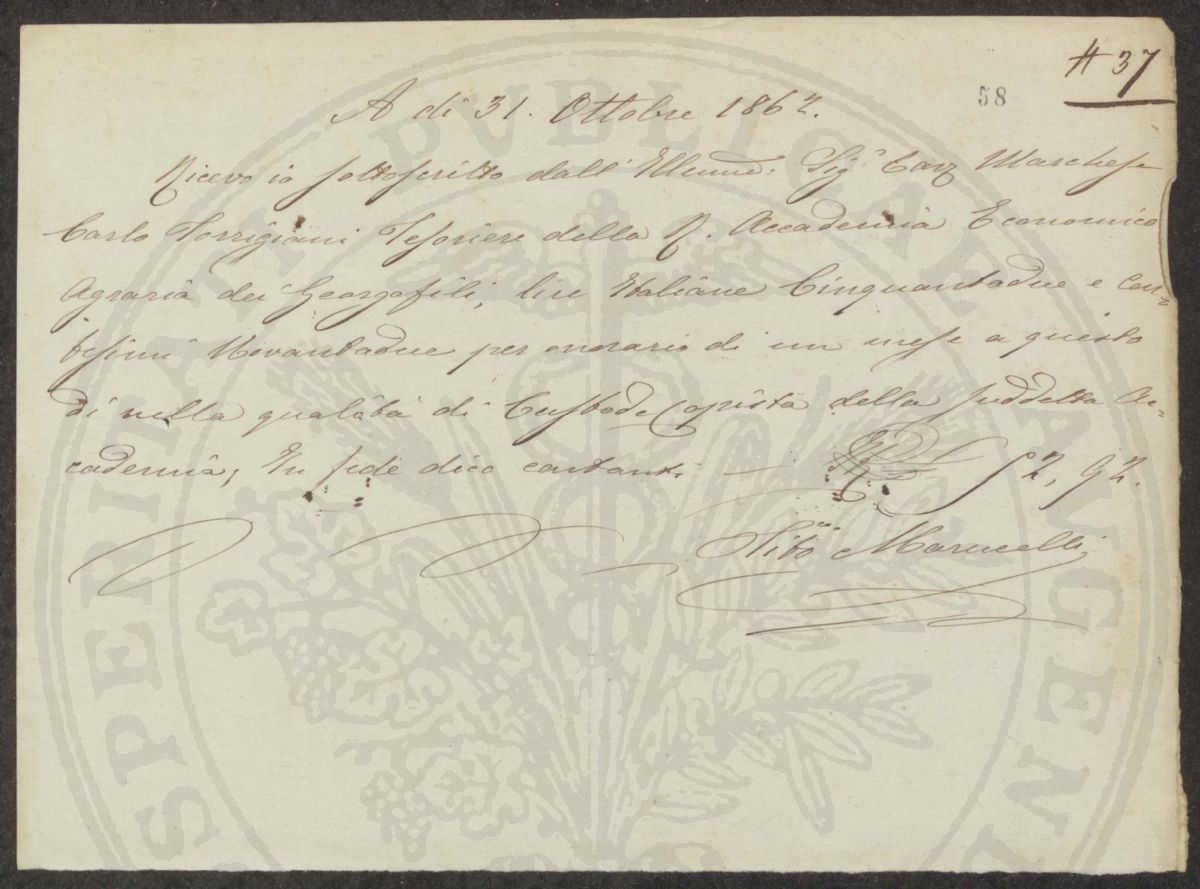 # 37
58
A di 31. Ottobre 1862.
Ricevo io sottoscritto dall' Illumo: Sigr Cav Marchese
Carlo Torrigiani Tesoriere della R. Accademia Economico
Agraria dei Georgofili, lire Italiane Cinquantadue e Cen-
tesimi Novantadue per onorario di un mese a questo
dì nella qualità di Custode Copista della suddetta Ac-
cademia, In fede dico contanti 52, 92.
Tito Marucelli
PUBLICAE AUGEN
SPERITATI